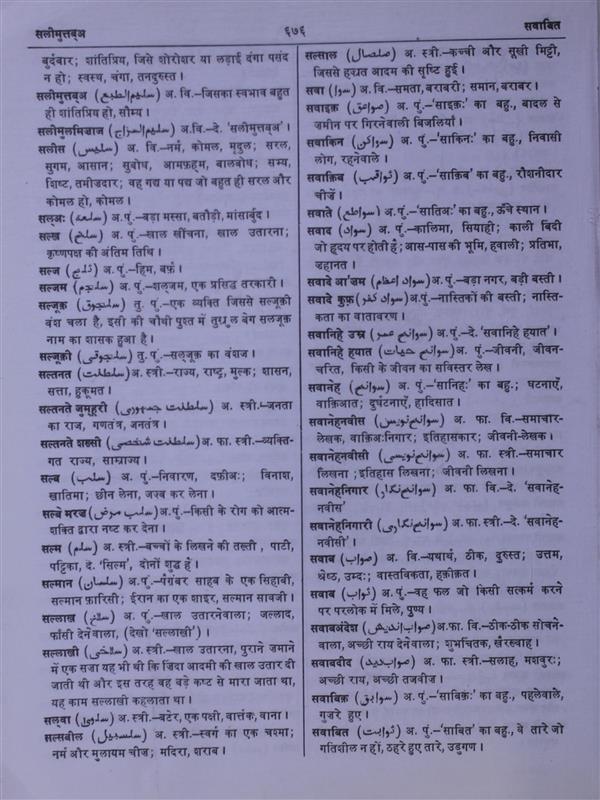 सलीमुत्तबूअ
६७६
सवाबित
बुर्दबार; शांतिप्रिय, जिसे शोरोशर या लड़ाई दंगा पसंद
न हो; स्वस्थ, चंगा, तनदुरुस्त ।
सलीमुत्तबूअ (سليم الطبع) अ. वि.–जिसका स्वभाव बहुत
ही शांतिप्रिय हो, सौम्य ।
सलीमुलमिज़ाज (سليم المزاج) अ. वि.–दे. 'सलीमुत्तबूअ' ।
सलीस (سليس) अ. वि.–नर्म, कोमल, मृदुल; सरल,
सुगम, आसान; सुबोध, आमफ़हम, बालबोध; सभ्य,
शिष्ट, तमीज़दार; वह गद्य या पद्य जो बहुत ही सरल और
कोमल हो, कोमल ।
सल्अः (سلعه) अ. पुं.–बड़ा मस्सा, बतौड़ी, मांसार्बुद ।
सल्ख़ (سلخ) अ. पुं.–खाल खींचना, खाल उतारना;
कृष्णपक्ष की अंतिम तिथि ।
सल्ज (ثلج) अ. पुं.–हिम, बर्फ़ ।
सल्जम (سلجم) अ. पुं.–शल्जम, एक प्रसिद्ध तरकारी ।
सल्जूक़ (سلجوق) तु. पुं.–एक व्यक्ति जिससे सल्जूक़ी
वंश चला है, इसी की चौथी पुश्त में तुग्रुल बेग सलजूक़
नाम का शासक हुआ है ।
सल्जूक़ी (سلجوقى) तु. पुं.–सल्जूक़ का वंशज ।
सल्तनत (سلطنت) अ. स्त्री.–राज्य, राष्ट्र, मुल्क; शासन,
सत्ता, हुकूमत ।
सल्तनते जुम्हूरी (سلطنت جمهورى) अ. स्त्री.–जनता
का राज, गणतंत्र, जनतंत्र ।
सल्तनते शख़्सी (سلطنت شخصى) अ. फा. स्त्री.–व्यक्ति-
गत राज्य, साम्राज्य ।
सल्ब (سلب) अ. पुं.–निवारण, दफ़ीअः; विनाश,
ख़ातिमा; छीन लेना, जस्ब कर लेना ।
सल्बे मरज़ (سلب مرض) अ. पुं.–किसी के रोग को आत्म-
शक्ति द्वारा नष्ट कर देना ।
सल्म (سلم) अ. स्त्री.–बच्चों के लिखने की तख्ती, पाटी,
पट्टिका, दे. 'सिल्म', दोनों शुद्ध हैं ।
सल्मान (سلمان) अ. पुं.–पैग़ंबर साहब के एक सिहाबी,
सल्मान फ़ारिसी; ईरान का एक शाइर, सल्मान सावजी ।
सल्लाख़ (سلاخ) अ. पुं.–खाल उतारनेवाला; जल्लाद,
फाँसी देनेवाला, (देखो 'सल्लाखी') ।
सल्लाख़ी (سلاخى) अ. स्त्री.–खाल उतारना, पुराने ज़माने
में एक सज़ा यह भी थी कि ज़िंदा आदमी की खाल उतार दी
जाती थी और इस तरह वह बड़े कष्ट से मारा जाता था,
यह काम सल्लाखी कहलाता था ।
सल्वा (سلوىٰ) अ. स्त्री.–बटेर, एक पक्षी, वार्त्तक, वाना ।
सल्सबील (سلسبيل) अ. स्त्री.–स्वर्ग का एक चश्मा;
नर्म और मुलायम चीज़; मदिरा, शराब ।
सल्साल (صلصال) अ. स्त्री.–कच्ची और सूखी मिट्टी,
जिससे हज़रत आदम की सृष्टि हुई ।
सवा (سوا) अ. वि.–समता, बराबरी; समान, बराबर ।
सवाइक़ (صواعق) अ. पुं.–'साइक़ः' का बहु., बादल से
ज़मीन पर गिरनेवाली बिजलियाँ ।
सवाकिन (سواكن) अ. पुं.–'साकिनः' का बहु., निवासी
लोग, रहनेवाले ।
सवाक़िब (ثواقب) अ. पुं.–'साक़िब' का बहु., रौशनीदार
चीज़ें ।
सवाते (سواطع) अ. पुं.–'सातिअः' का बहु., ऊँचे स्थान ।
सवाद (سواد) अ. पुं.–कालिमा, सियाही; काली बिंदी
जो हृदय पर होती है; आस-पास की भूमि, हवाली; प्रतिभा,
ज़हानत ।
सवादे आ'ज़म (سواد اعظم) अ. पुं.–बड़ा नगर, बड़ी बस्ती ।
सवादे कुफ़्र (سواد كفر) अ. पुं.–नास्तिकों की बस्ती; नास्ति-
कता का वातावरण ।
सवानिहे उम्र (سوانح عمر) अ. पुं.–दे. 'सवानिहे हयात' ।
सवानिहे हयात (سوانح حيات) अ. पुं.–जीवनी, जीवन-
चरित, किसी के जीवन का सविस्तर लेख ।
सवानेह (سوانح) अ. पुं.–'सानिहः' का बहु.; घटनाएँ,
वाक़िआत; दुर्घटनाएँ, हादिसात ।
सवानेहनवीस (سوانح نويس) अ. फा. वि.–समाचार-
लेखक, वाक़िअःनिगार; इतिहासकार; जीवनी-लेखक ।
सवानेहनवीसी (سوانح نويسى) अ. फा. स्त्री.–समाचार
लिखना; इतिहास लिखना; जीवनी लिखना ।
सवानेहनिगार (سوانح نگار) अ. फा. वि.–दे. 'सवानेह-
नवीस' ।
सवानेहनिगारी (سوانح نگارى) अ. फा. स्त्री.–दे. 'सवानेह-
नवीसी' ।
सवाब (صواب) अ. वि.–यथार्थ, ठीक, दुरुस्त; उत्तम,
श्रेष्ठ, उम्दः; वास्तविकता, हक़ीक़त ।
सवाब (ثواب) अ. पुं.–वह फल जो किसी सत्कर्म करने
पर परलोक में मिले, पुण्य ।
सवाबअंदेश (صواب انديش) अ. फा. वि.–ठीक-ठीक सोचने-
वाला, अच्छी राय देनेवाला; शुभचिंतक, ख़ैरख़्वाह ।
सवाबदीद (صواب ديد) अ. फा. स्त्री.–सलाह, मशवुरः;
अच्छी राय, अच्छी तजवीज़ ।
सवाबिक़ (سوابق) अ. पुं.–'साबिक़ः' का बहु., पहलेवाले,
गुज़रे हुए ।
सवाबित (ثوابت) अ. पुं.–'साबित' का बहु., वे तारे जो
गतिशील न हों, ठहरे हुए तारे, उडुगण ।